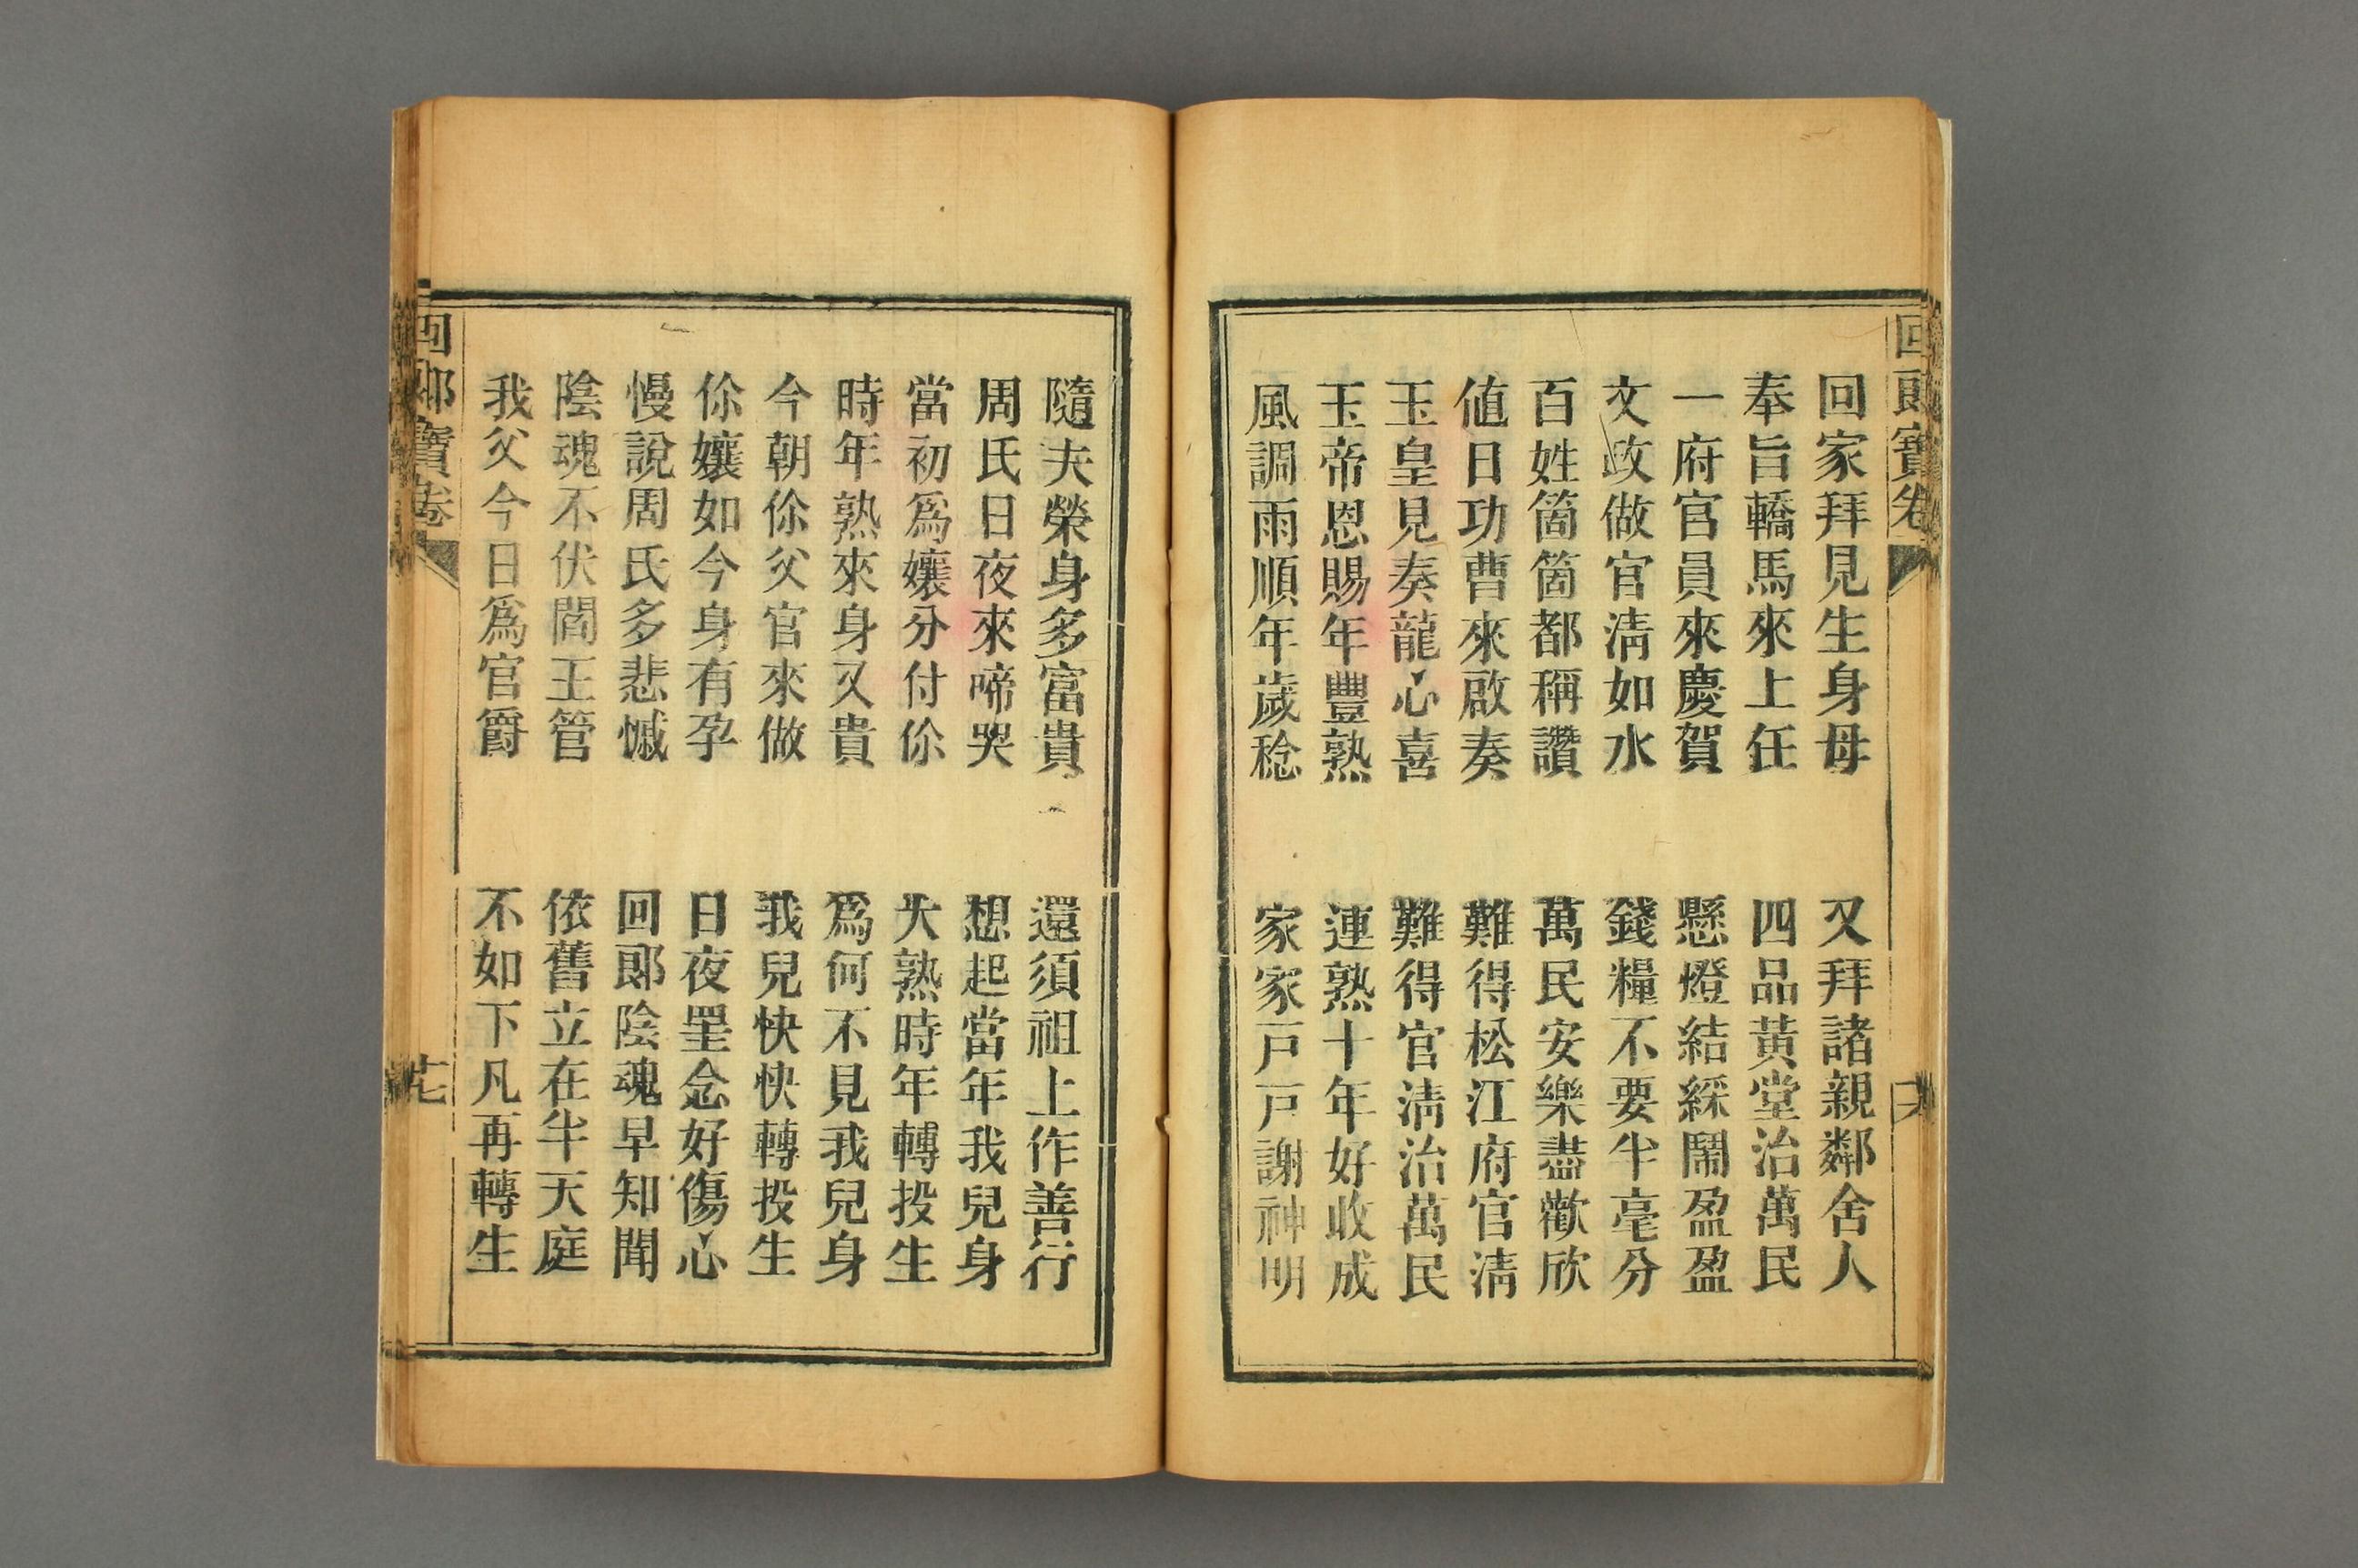 回郎寶卷
回家拜見生身母　又拜諸親鄰舍人
奉旨轎馬來上任　四品黃堂治萬民
一府官員來慶賀　懸燈結綵鬧盈盈
文政做官清如水　錢糧不要半毫分
百姓箇箇都稱讚　萬民安樂盡歡欣
值日功曹來啟奏　難得松江府官清
玉皇見奏龍心喜　難得官清治萬民
玉帝恩賜年豐熟　連熟十年好收成
風調雨順年歲稔　家家戶戶謝神明
隨夫榮身多富貴　還須祖上作善行
周氏日夜來啼哭　想起當年我兒身
當初為孃分付你　大熟時年轉投生
時年熟來身又貴　為何不見我兒身
今朝你父官來做　我兒快快轉投生
你孃如今身有孕　日夜罣念好傷心
慢說周氏多悲慽　回郎陰魂早知聞
陰魂不伏閻王管　依舊立在半天庭
我父今日為官爵　不如下凡再轉生
回郎寶卷